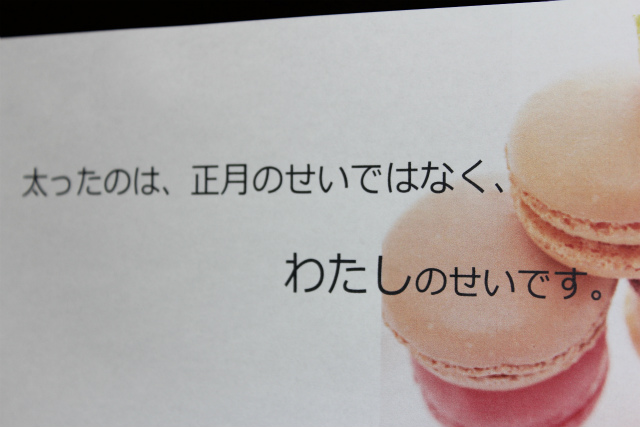 太ったのは、正月のせいではなく、
わたしのせいです。